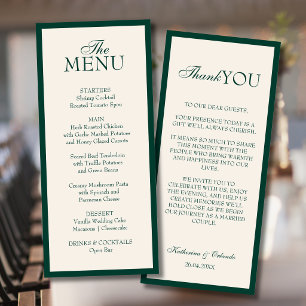 The
MENU
STARTERS
Shrimp Cocktail
Roasted Tomato Soup
MAIN
Herb Roasted Chicken
with Garlic Mashed Potatoes
and Honey Glazed Carrots
Seared Beef Tenderloin
with Truffle Potatoes
and Green Beans
Creamy Mushroom Pasta
with Spinach and
Parmesan Cheese
DESSERT
Vanilla Wedding Cake
Macarons | Cheesecake
DRINKS & COCKTAILS
Open Bar
Thank YOU
TO OUR DEAR GUESTS,
YOUR PRESENCE TODAY IS A
GIFT WE'LL ALWAYS CHERISH.
IT MEANS SO MUCH TO SHARE
THIS MOMENT WITH THE
PEOPLE WHO BRING WARMTH
AND HAPPINESS INTO OUR
LIVES.
WE INVITE YOU TO
CELEBRATE WITH US, ENJOY
THE EVENING, AND HELP US
CREATE MEMORIES WE'LL
HOLD CLOSE AS WE BEGIN
OUR JOURNEY AS A MARRIED
COUPLE.
Katherine & Orlando
26.04.20XX